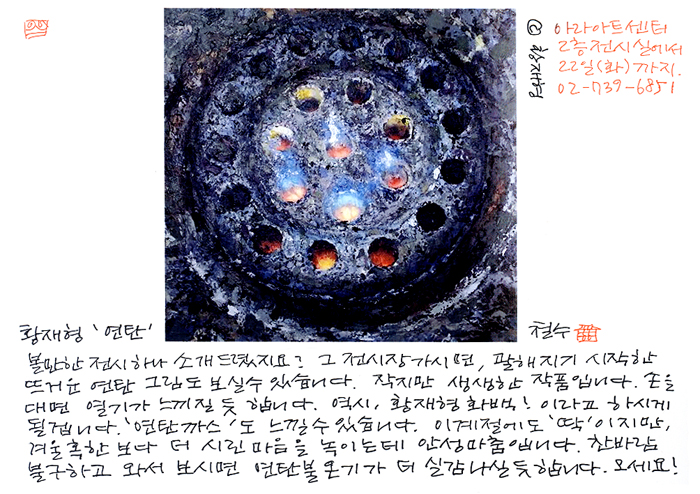 아라아트센터
2층전시실에서
22일(화)까지.
02-739-6851
© 황재형
황재형 '연탄'
철수
볼만한 전시하나 소개드렸지요? 그 전시장가시면, 괄해지기 시작한
뜨거운 연탄 그림도 보실수 있습니다. 작지만 생생한 작품입니다. 손을
대면 열기가 느껴질 듯 합니다. 역시, 황재형화백! 이라고 하시게
될겁니다. '연탄까스'도 느낄수 있습니다. 이계절에도 '딱'이지만,
겨울혹한 보다 더 시린 마음을 녹이는데 안성마춤입니다. 찬바람
불구하고 와서 보시면 연탄불 온기가 더 실감나실듯합니다. 오세요!